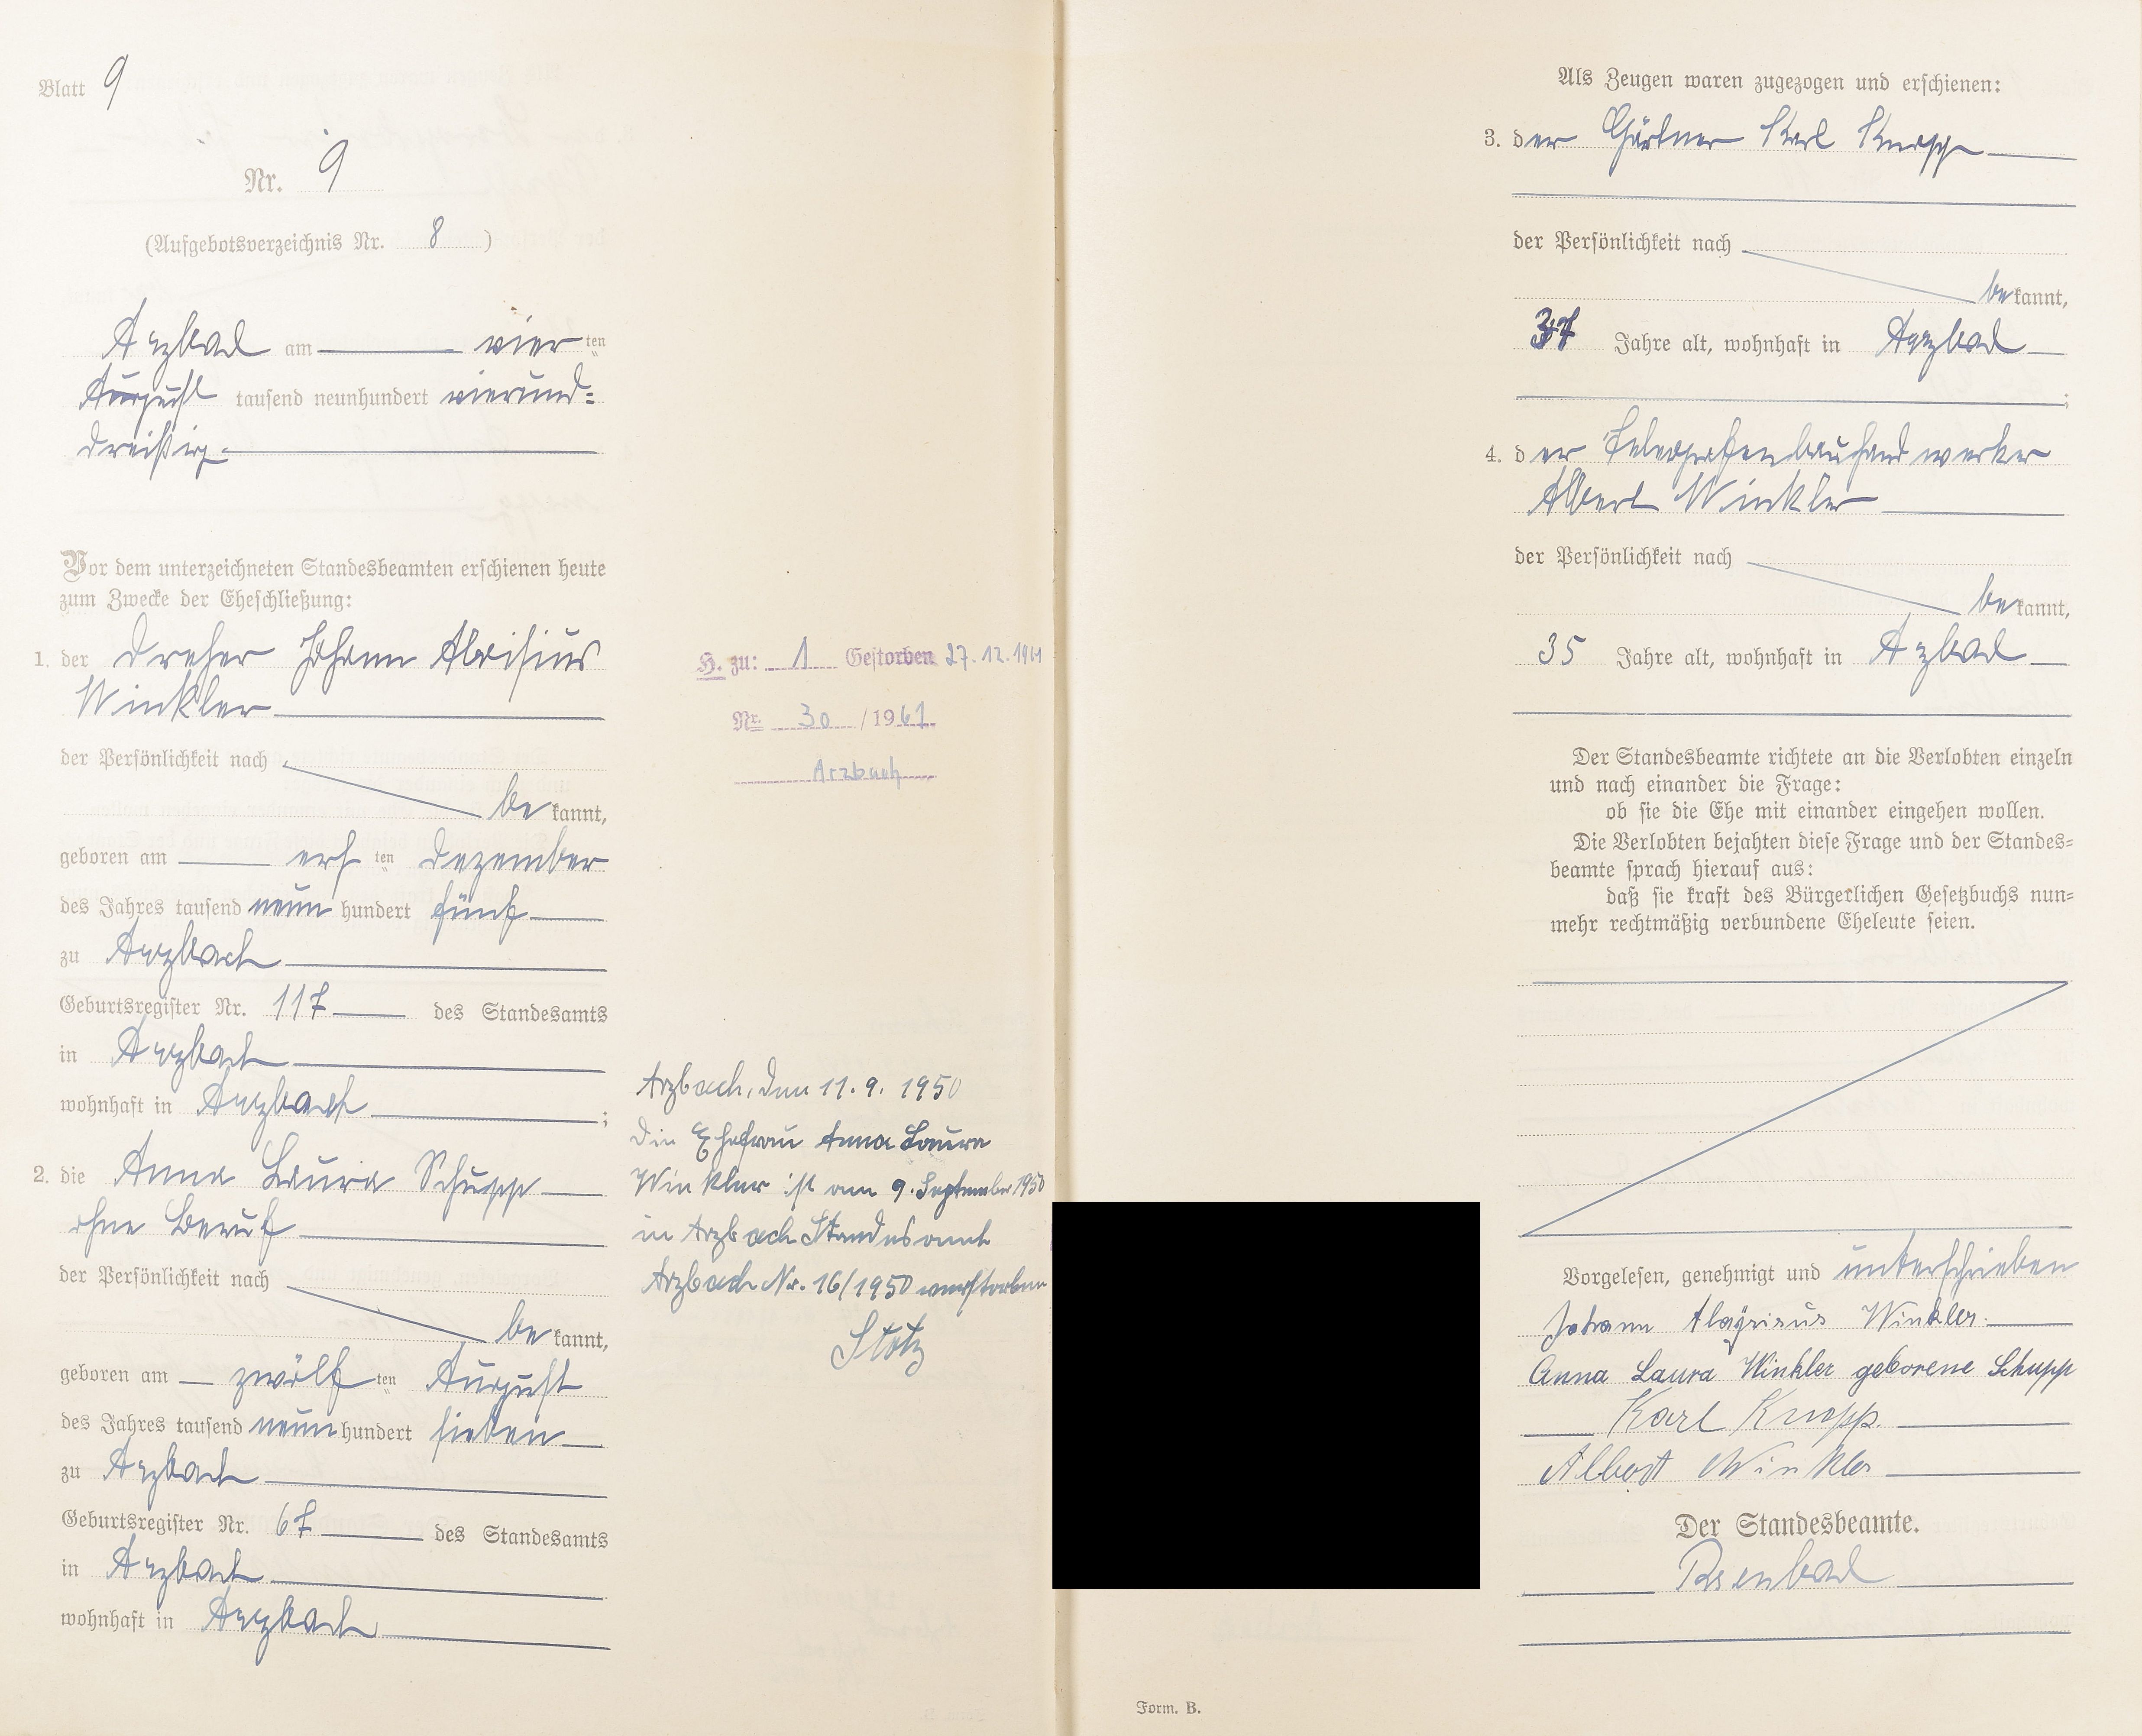 Blatt 9
Nr. 9
(Aufgebotsverzeichnis Nr. 8 )
Arzbach am vier ten
August tausend neunhundert vierund=
dreißig.
Vor dem unterzeichneten Standesbeamten erschienen heute
zum Zwecke der Eheschließung:
1. der Dreher Johann Aloisius
Winkler
der Persönlichkeit nach
be kannt,
geboren am ten Dezember
des Jahres tausend neun hundert fünf
zu Arzbach
Geburtsregister Nr. 117 des Standesamts
in Arzbach
wohnhaft in Arzbach ;
2. die Anna Laura Schupp
ohne Beruf
der Persönlichkeit nach
be kannt,
geboren am zwölf ten August
des Jahres tausend neun hundert sieben
zu Arzbach
Geburtsregister Nr. 67 des Standesamts
in Arzbach
wohnhaft in Arzbach
H. zu: 1 Gestorben 27.12.1961
Nr. 30 /1961
Arzbach
Arzbach, den 11.9. 1950
Die Ehefrau Anna Laura
Winkler ist am 9. September 1950
in Arzbach Standesamt
Arzbach Nr. 16/1950 verstorben
Stotz
Als Zeugen waren zugezogen und erschienen:
3. der Gärtner Karl Knopp
der Persönlichkeit nach
be kannt,
37 Jahre alt, wohnhaft in Arzbach
;
4. der Telegrafenbauhandwerker
Albert Winkler
der Persönlichkeit nach
be kannt,
35 Jahre alt, wohnhaft in Arzbach
Der Standesbeamte richtete an die Verlobten einzeln
und nach einander die Frage:
ob sie die Ehe mit einander eingehen wollen.
Die Verlobten bejahten diese Frage und der Standes=
beamte sprach hierauf aus:
daß sie kraft des Bürgerlichen Gesetzbuchs nun=
mehr rechtmäßig verbundene Eheleute seien.
Vorgelesen, genehmigt und unterschrieben
Johann Aloysius Winkler.
Anna Laura Winkler geborene Schupp
Karl Knopp.
Albert Winkler
Der Standesbeamte.
Form. B.